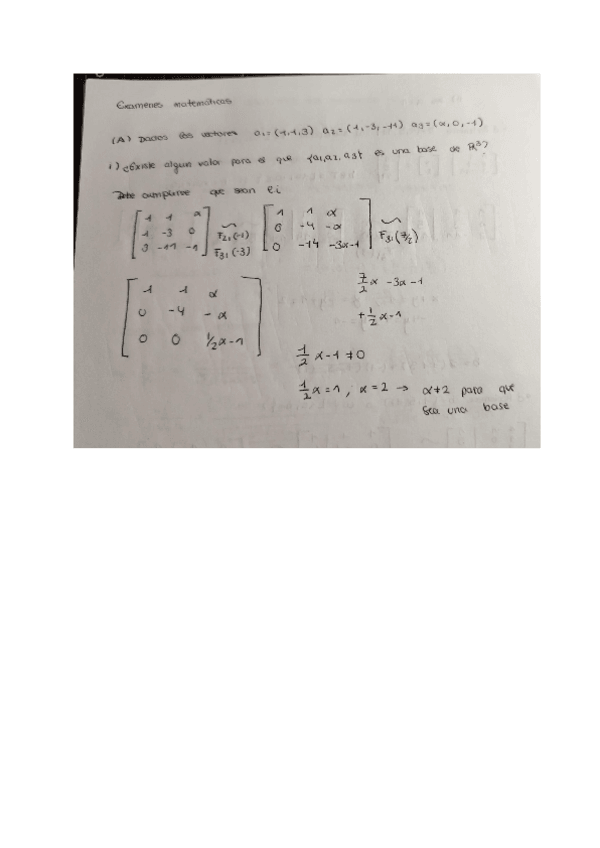 Examenes matemáticas
(A) Dados los vectores a1=(1,1,3) a2=(1,-3,-11) a3=(α,0,-1)
1) ¿Existe algun valor para el que {a1,a2,a3} es una base de R³?
Debe cumplirse que sean l.i
[1 1 α; 1 -3 0; 3 -11 -1] ~ F21(-1) F31(-3) [1 1 α; 0 -4 -α; 0 -14 -3α-1] ~ F31(7/2)
[1 1 α; 0 -4 -α; 0 0 1/2α-1]
7/2 α -3α-1
+1/2 α-1
1/2 α-1 ≠0
1/2 α=1 ; α=2 → α≠2 para que
sea una base